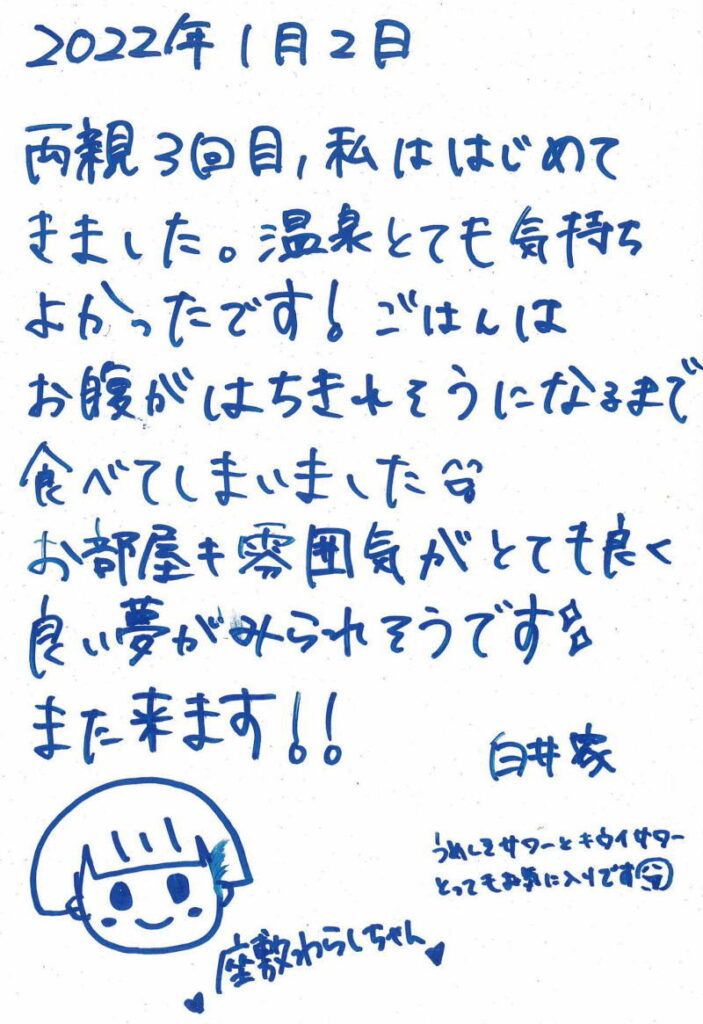 2022年1月2日
両親3回目,私ははじめて
きました。温泉とても気持ち
よかったです!ごはんは
お腹がはちきれそうになるまで
食べてしまいました
お部屋も雰囲気がとても良く
良い夢がみられそうです
また来ます!!
白井家
うめしそサワーとキウイサワー
とってもお気に入りです
座敷わらしちゃん